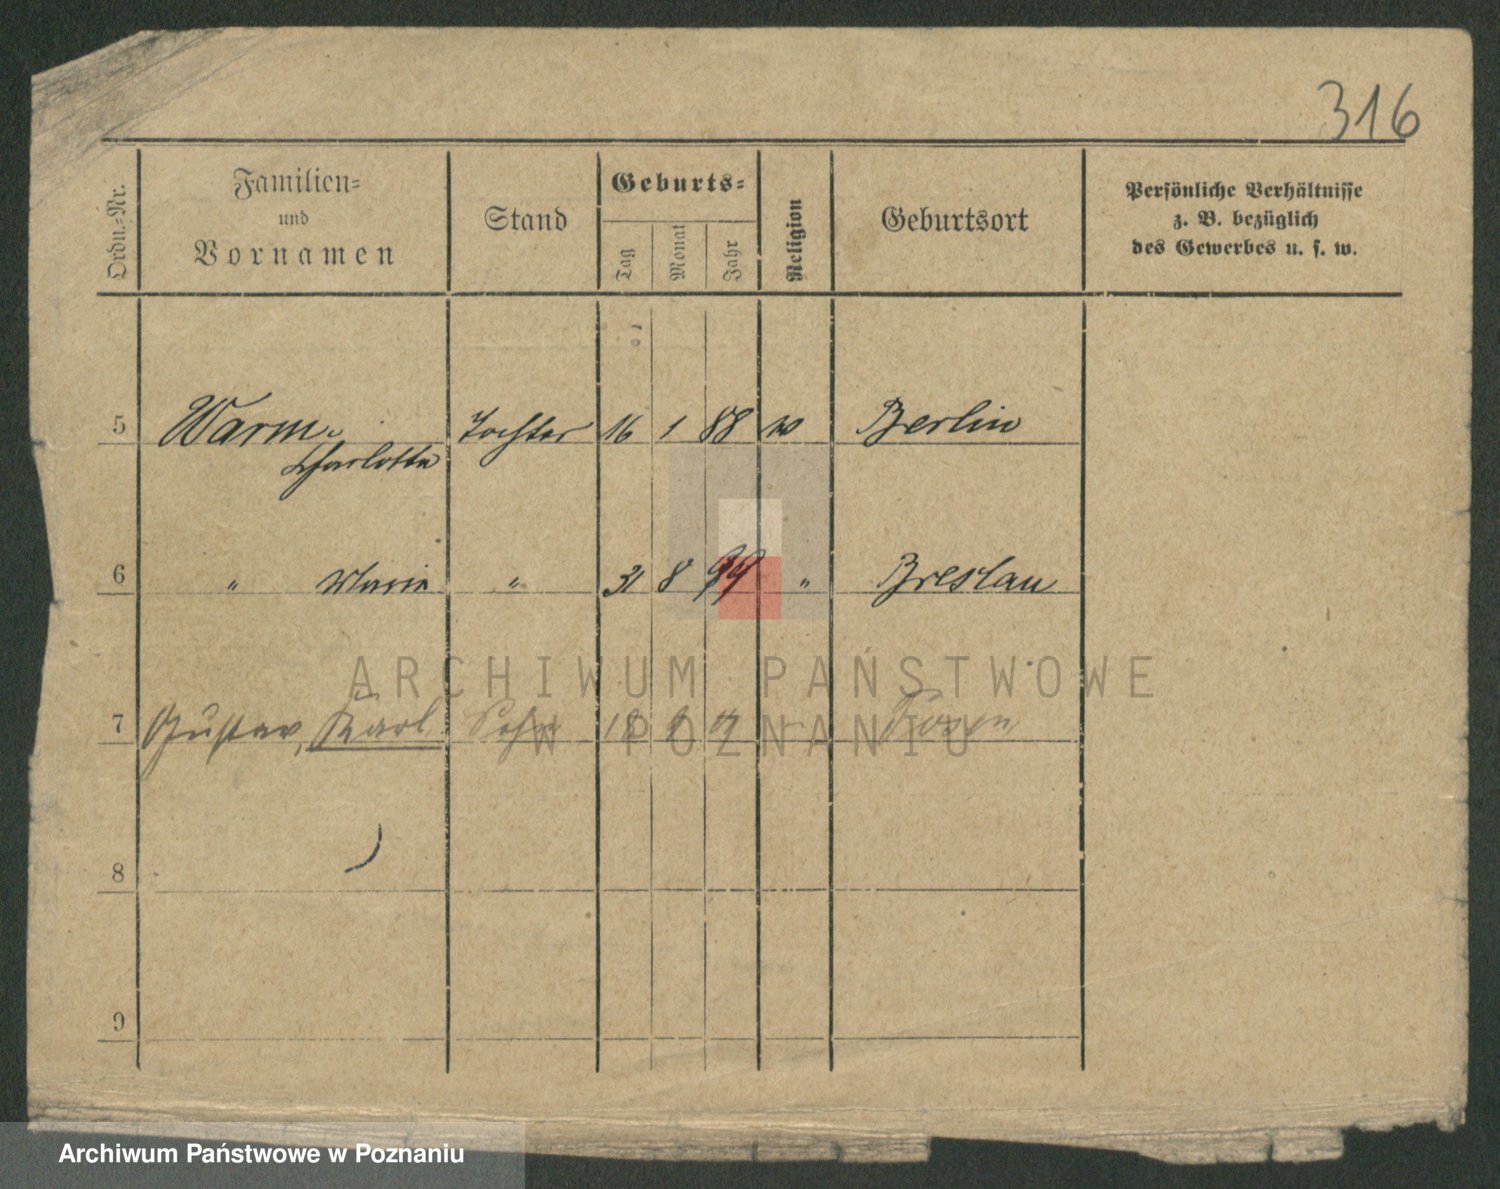 316
Ordn.-Nr.
Familien-
und
Vornamen
Stand
Geburts-
Tag
Monat
Jahr
Religion
Geburtsort
Persönliche Verhältnisse
z. B. bezüglich
des Gewerbes u. s. w.
5 Warm Tochter 16 1 88 Berlin
Charlotte
6 " Marie " 31 8 99 " Breslau
7 Gustav, Karl Sohn 18 Posen
8
9
ARCHIWUM PAŃSTWOWE
W POZNANIU
Archiwum Państwowe w Poznaniu